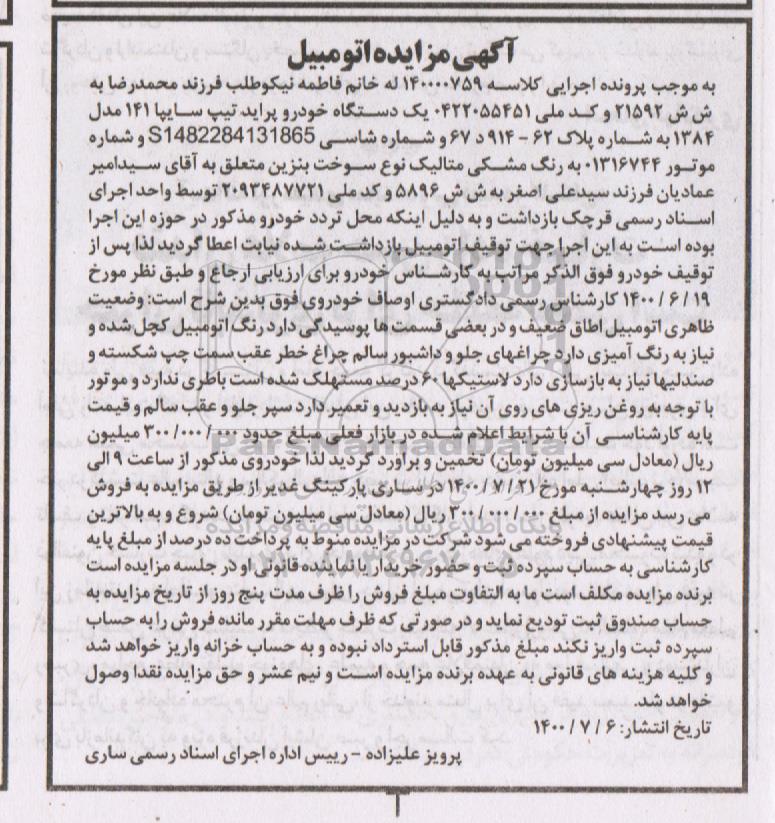 آگهی مزایده اتومبیل
به موجب پرونده اجرایی کلاسه ۱۴۰۰۰۰۷۵۹ له خانم فاطمه نیکوطلب فرزند محمدرضا به
ش ش ۲۱۵۹۲ و کد ملی ۰۴۲۲۰۵۵۴۵۱ یک دستگاه خودرو پراید تیپ سایپا ۱۴۱ مدل
۱۳۸۴ به شماره پلاک ۶۲ - ۹۱۴ د ۶۷ و شماره شاسی S1482284131865 و شماره
موتور ۰۱۳۱۶۷۴۴ به رنگ مشکی متالیک نوع سوخت بنزین متعلق به آقای سیدامیر
عمادیان فرزند سیدعلی اصغر به ش ش ۵۸۹۶ و کد ملی ۲۰۹۳۴۸۷۷۲۱ توسط واحد اجرای
اسناد رسمی قرچک بازداشت و به دلیل اینکه محل تردد خودرو مذکور در حوزه این اجرا
بوده است به این اجرا جهت توقیف اتومبیل بازداشت شده نیابت اعطا گردید لذا پس از
توقیف خودرو فوق الذکر مراتب به کارشناس خودرو برای ارزیابی ارجاع و طبق نظر مورخ
۱۹ / ۶ / ۱۴۰۰ کارشناس رسمی دادگستری اوصاف خودروی فوق بدین شرح است: وضعیت
ظاهری اتومبیل اطاق ضعیف و در بعضی قسمت ها پوسیدگی دارد رنگ اتومبیل کچل شده و
نیاز به رنگ آمیزی دارد چراغهای جلو و داشبور سالم چراغ خطر عقب سمت چپ شکسته و
صندلیها نیاز به بازسازی دارد لاستیکها ۶۰ درصد مستهلک شده است باطری ندارد و موتور
با توجه به روغن ریزی های روی آن نیاز به بازدید و تعمیر دارد سپر جلو و عقب سالم و قیمت
پایه کارشناسی آن با شرایط اعلام شده در بازار فعلی مبلغ حدود ۳۰۰/۰۰۰/۰۰۰ میلیون
ریال (معادل سی میلیون تومان) تخمین و براورد گردید لذا خودروی مذکور از ساعت ۹ الی
۱۲ روز چهارشنبه مورخ ۲۱ / ۷ / ۱۴۰۰ در ساری پارکینگ غدیر از طریق مزایده به فروش
می رسد مزایده از مبلغ ۳۰۰/۰۰۰/۰۰۰ ریال (معادل سی میلیون تومان) شروع و به بالاترین
قیمت پیشنهادی فروخته می شود شرکت در مزایده منوط به پرداخت ده درصد از مبلغ پایه
کارشناسی به حساب سپرده ثبت و حضور خریدار یا نماینده قانونی او در جلسه مزایده است
برنده مزایده مکلف است ما به التفاوت مبلغ فروش را ظرف مدت پنج روز از تاریخ مزایده به
حساب صندوق ثبت تودیع نماید و در صورتی که ظرف مهلت مقرر مانده فروش را به حساب
سپرده ثبت واریز نکند مبلغ مذکور قابل استرداد نبوده و به حساب خزانه واریز خواهد شد
و کلیه هزینه های قانونی به عهده برنده مزایده است و نیم عشر و حق مزایده نقدا وصول
خواهد شد.
تاریخ انتشار: ۶ / ۷ / ۱۴۰۰
پرویز علیزاده - رییس اداره اجرای اسناد رسمی ساری
ParsNamadData
پایگاه اطلاع رسانی مناقصه و مزایده